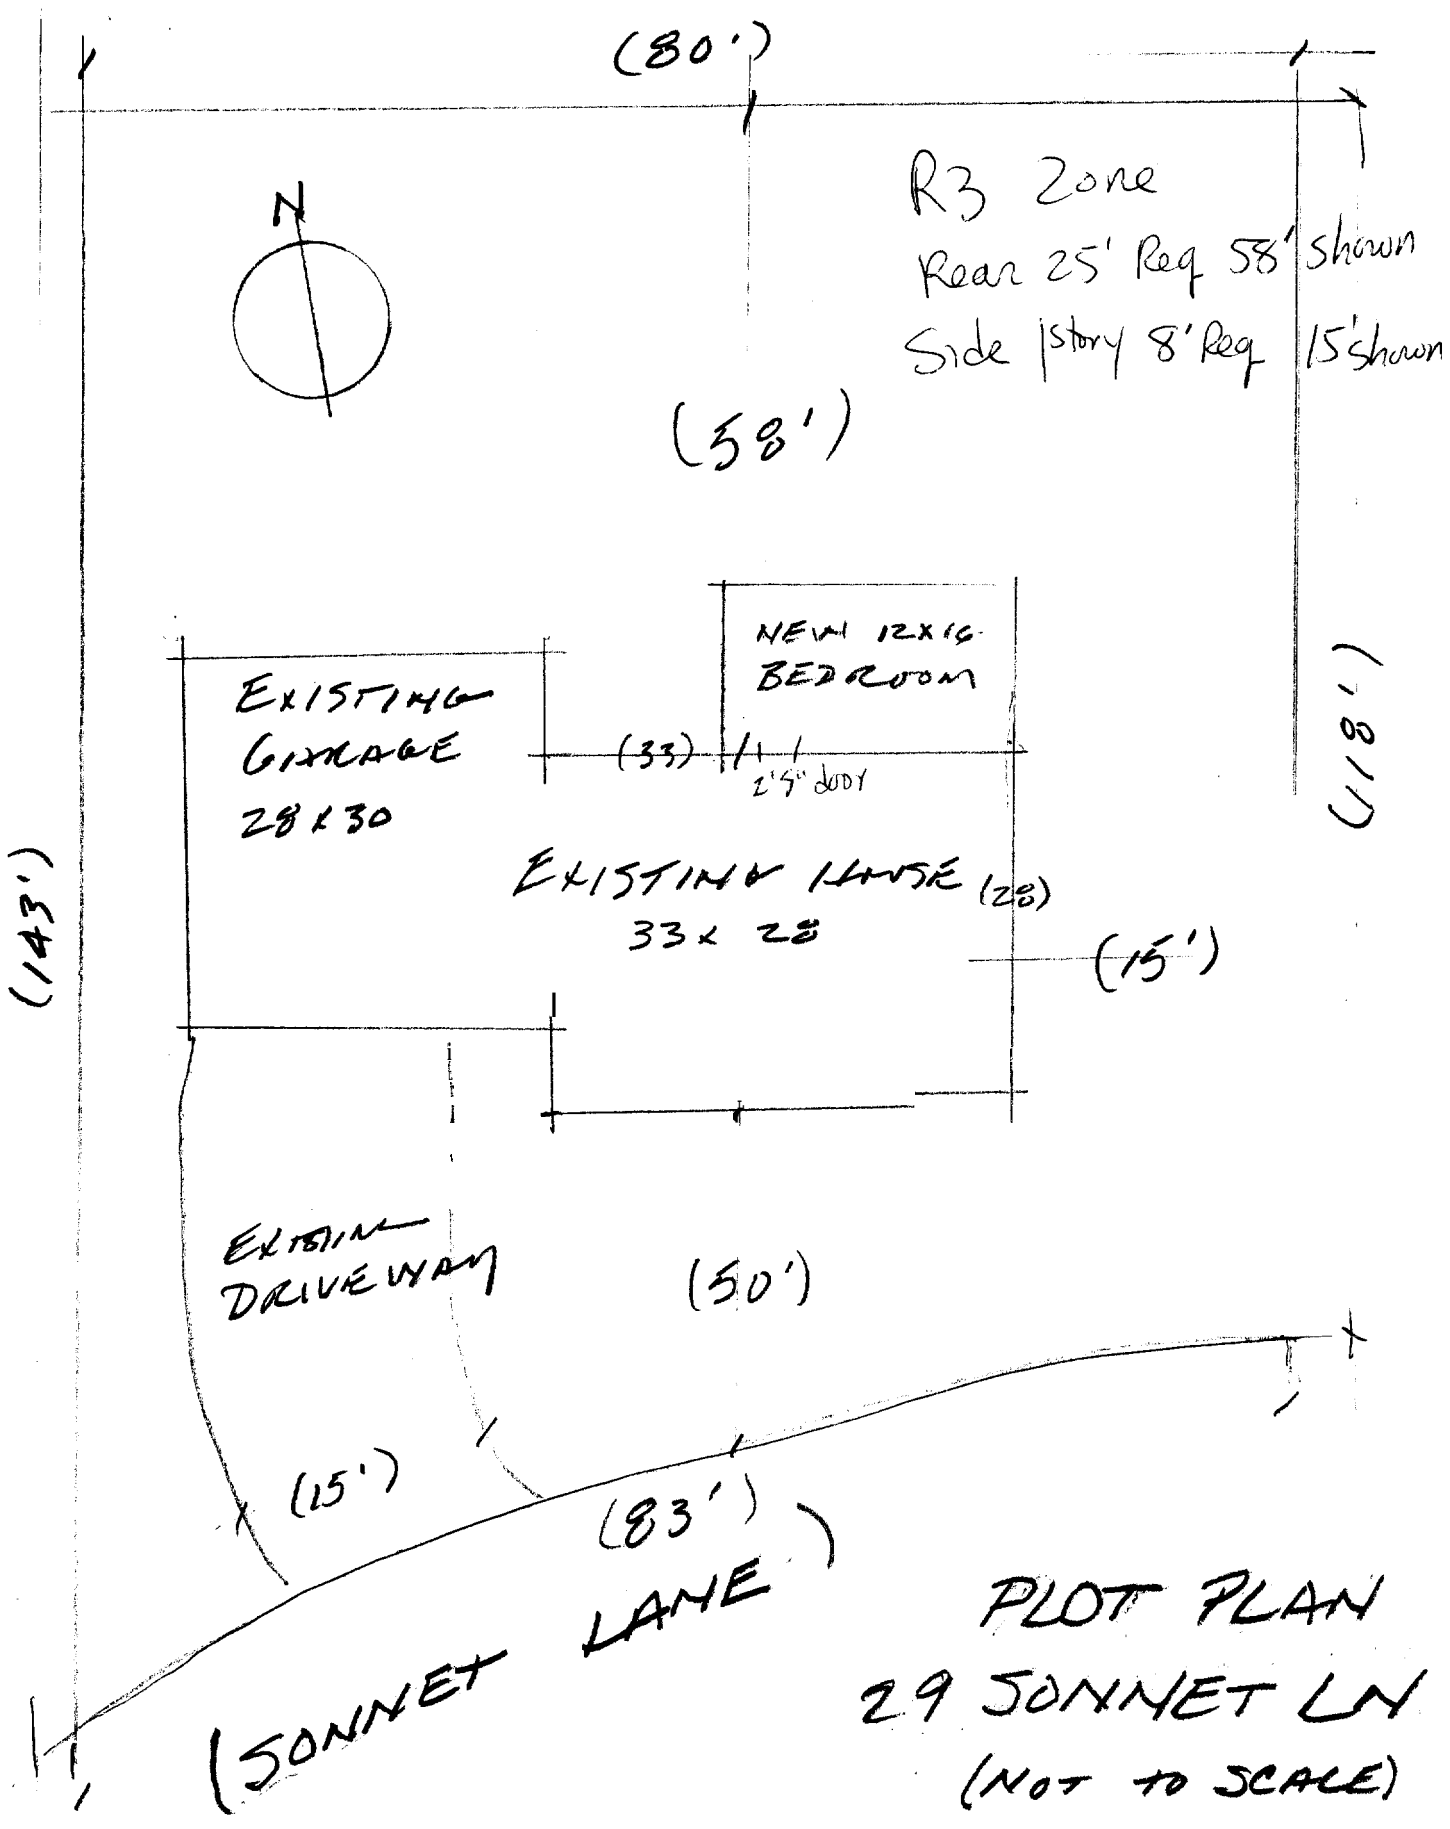 (80')
N
R3 Zone
Rear 25' Req 58' shown
Side 1 story 8' Req 15' shown
(58')
NEW 12x16
BEDROOM
EXISTING
GARAGE
28 x 30
(33)
door
(118')
EXISTING HOUSE (28)
33 x 28
(143')
(15')
EXISTING
DRIVEWAY
(50')
(15')
(83')
(SONNET LANE)
PLOT PLAN
29 SONNET LN
(NOT TO SCALE)